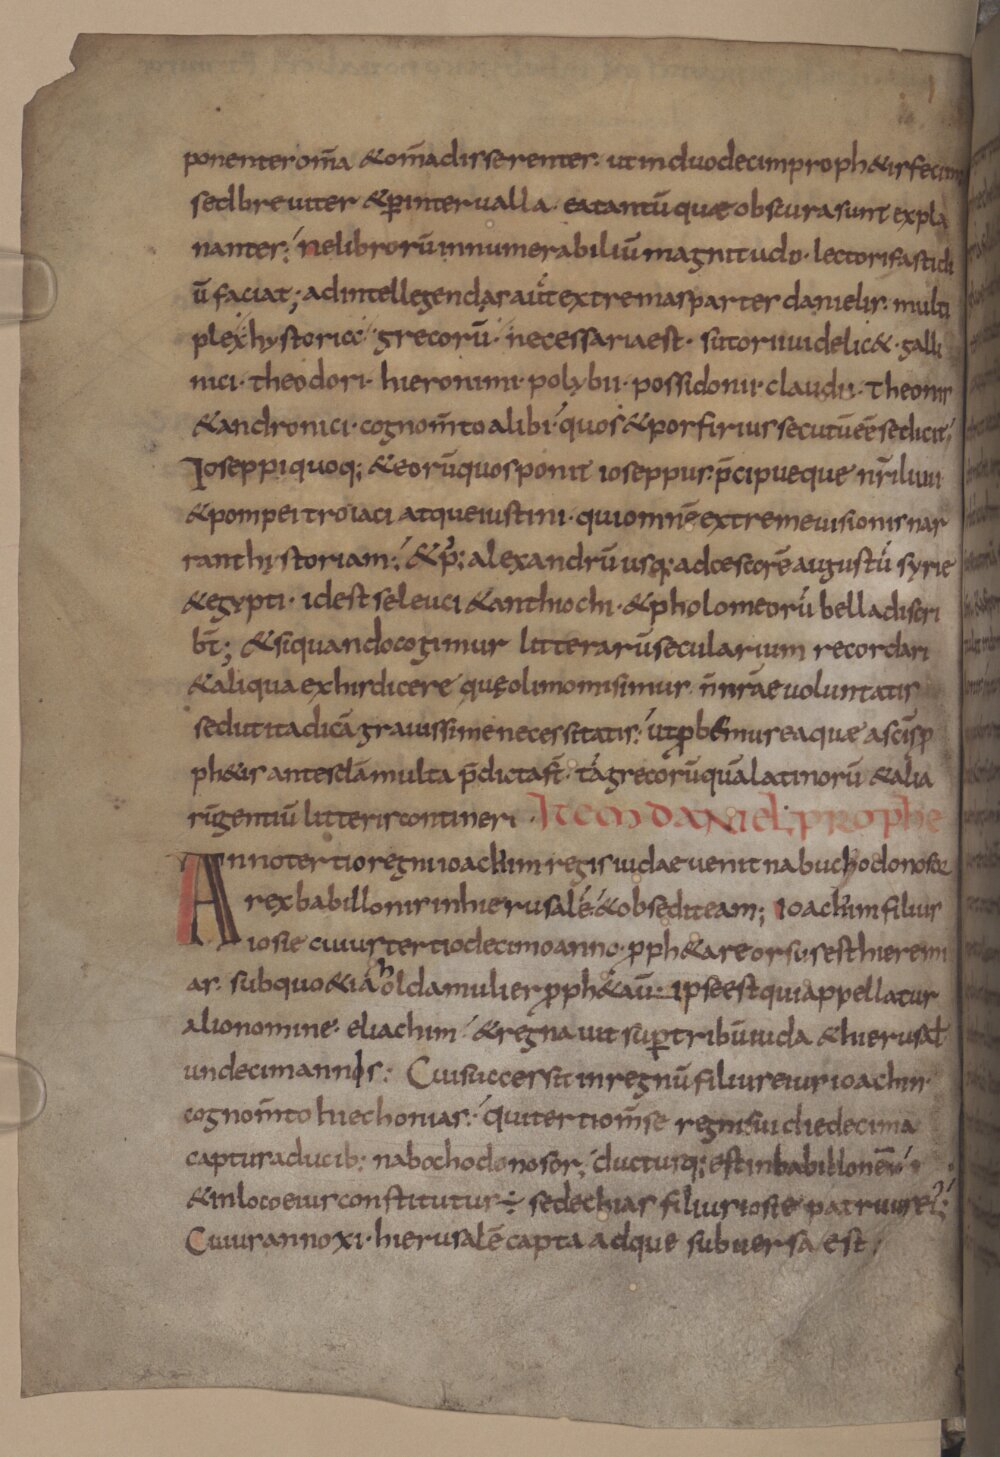 ponenter om̄a &om̄a disserenter. ut in duodecim proph&is fecim
sed breuiter &per interualla. ea tantū quae obscura sunt expla
nanter; ne librorū innumerabiliū magnitudo. lectori fastidi
ū faciat; ad intellegendas aūt extremas parter danielis. multi
plex hystoria grecorū. necessaria est. sutorii uidelic&. galli
nici. theodori. hieronimi. polybii. possidonii. claudii. theonis
&andronici. cognom̄to alibi. quos &porfirius secutū eē se dicit;
Ioseppi quoq; &eorū quos ponit ioseppus. p̄cipueque nr̄i liuii
&pompei troiaci atque iustini. qui omnē extreme uisionis nar
rant hystoriam; &p; alexandrū usq; ad cescorē augustū syrie
&egypti. id est seleuci &anthiochi. &pholomeorū bella discri
bt̄; &si quando cogimur litterarū secularium recordari
&aliqua ex his dicere quę olim omisimus. n̄ nr̄ae uoluntatis
sed ut ita dicā grauissime necessitatis. ut pbemus ea quae a sc̄is p
ph&is ante scl̄a multa p̄dicta st̄. tā grecorū quā latinorū &alia
rū gentiū litteris contineri.. Item DANIEL PROPHE
Anno tertio regni ioachim regis iudae uenit nabuchodonosor
rex babillonis in hierusalē &obsedit eam; Ioachim filius
iosie cuius tertiodecimo anno. pph&are orsus est hieremi
as. sub quo &iā olda mulier pph&au. Ipse est qui appellatur
alio nomine. eliachim &regnauit sup tribū iuda &hierusal̄
undecim annos: Cui successit in regnū filius eius ioachin
cognom̄to hiechonias. qui tertio m̄se regni sui die decima
captus a ducib; nabochodonosor; ductusq; est in babillonē
&in loco eius constitutus ÷ sedechias filius iosie patruus ei;
Cuius anno xi. hierusalē capta adque subuersa est;